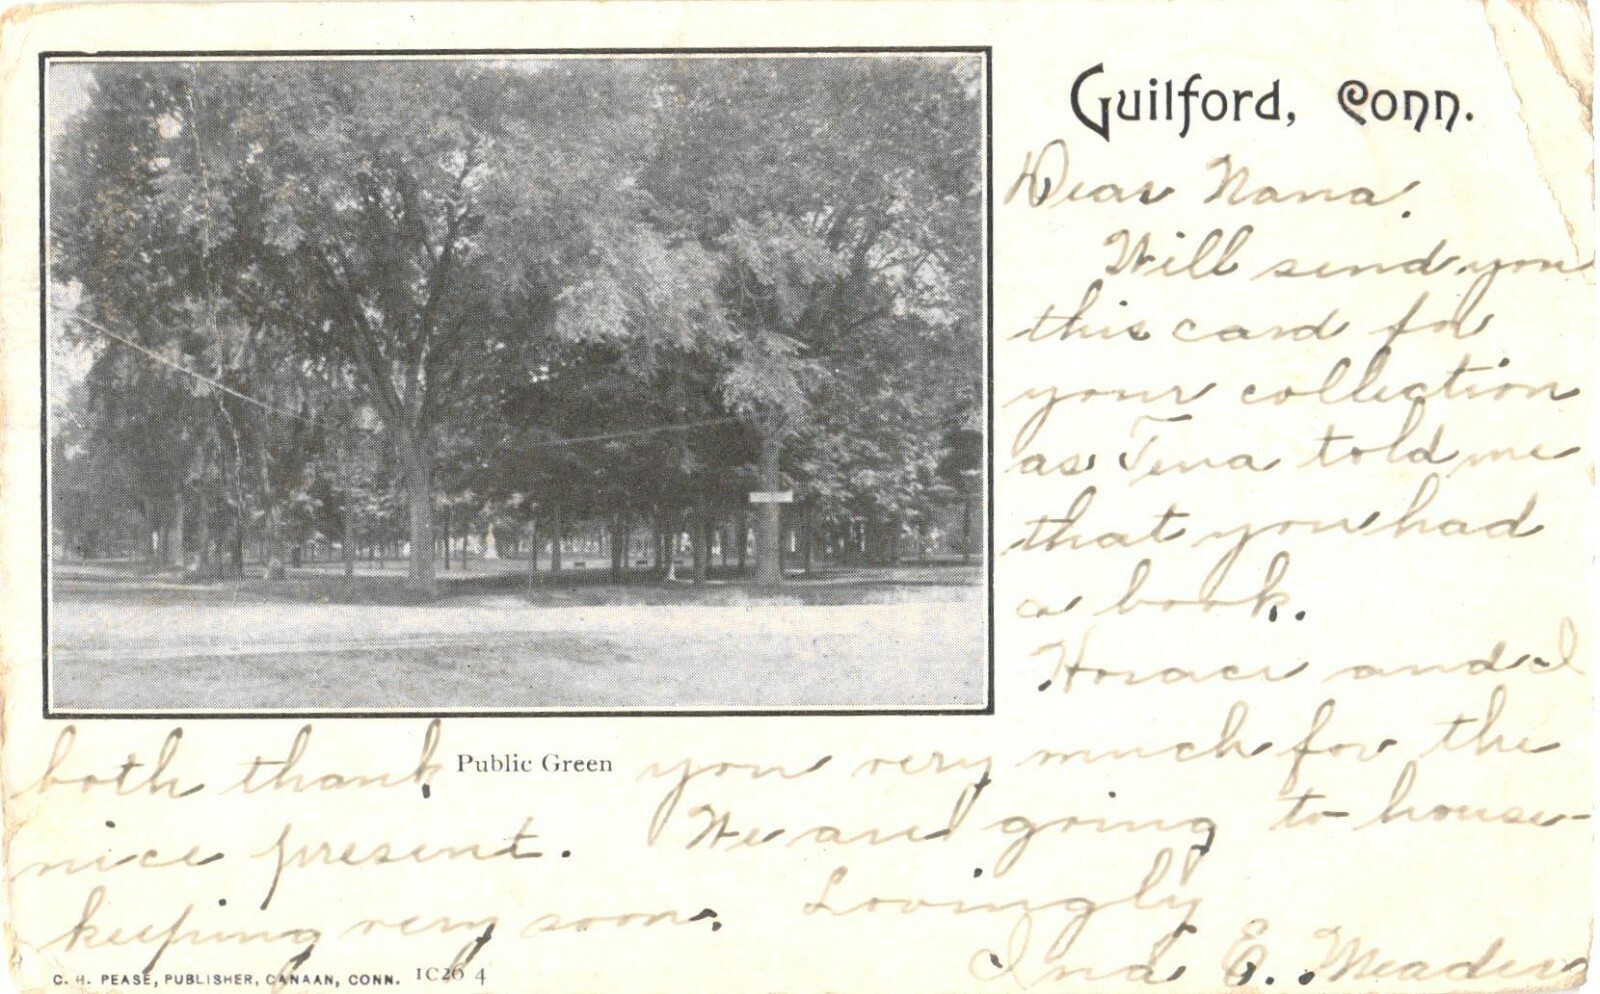 Guilford, Conn.
Dear Nana.
Will send you
this card for
your collection
as Tena told me
that you had
a book.
Horace and I
both thank you very much for the
Public Green
nice present. We are going to house-
keeping very soon. Lovingly
Ina E. Meader
C. H. PEASE, PUBLISHER, CANAAN, CONN. 1C26 4